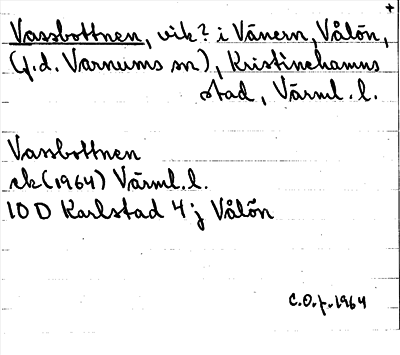 +
Vassbottnen, vik? i Vänern, Vålön,
(f.d. Varnums sn), Kristinehamns
stad, Värml. l.
Vassbottnen
ek (1964) Värml. l.
10 D Karlstad 4 j Vålön
C.O.f. 1964